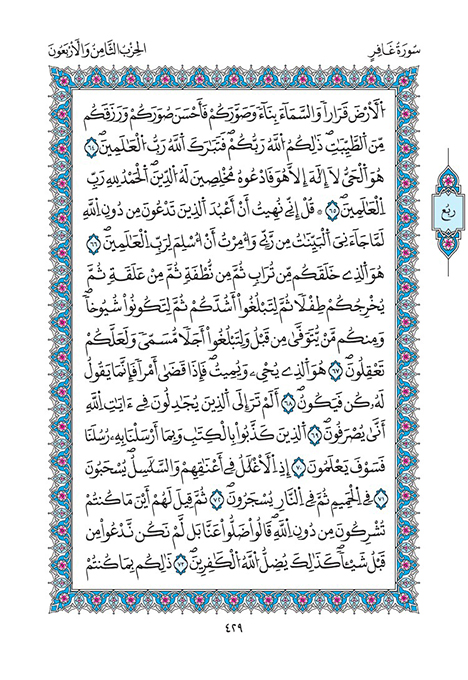 سُورَةُ غَافِرٍ
الحِزْبُ الثَّامِنُ وَالْأَرْبَعُونَ
اَلْأَرْضَ قَرَاراً وَالسَّمَآءَ بِنَآءً وَصَوَّرَكُمْ فَأَحْسَنَ صُوَرَكُمْ وَرَزَقَكُم
مِّنَ اَلطَّيِّبَٰتِ ذَٰلِكُمُ اللَّهُ رَبُّكُمْ فَتَبَٰرَكَ اَللَّهُ رَبُّ اُلْعَٰلَمِينَ ٦٤
هُوَ اَلْحَيُّ لَآ إِلَٰهَ إِلَّا هُوَ فَادْعُوهُ مُخْلِصِينَ لَهُ اُلدِّينَ اَلْحَمْدُ لِلهِ رَبِّ
اِلْعَٰلَمِينَ ٦٥ ۞ قُلْ إِنِّي نُهِيتُ أَنْ أَعْبُدَ اَلَّذِينَ تَدْعُونَ مِن دُونِ اِللَّهِ
لَمَّا جَآءَنِيَ اَلْبَيِّنَٰتُ مِن رَّبِّي وَأُمِرْتُ أَنْ أُسْلِمَ لِرَبِّ اِلْعَٰلَمِينَ ٦٦
هُوَ اَلَّذِي خَلَقَكُم مِّن تُرَابٍ ثُمَّ مِن نُّطْفَةٍ ثُمَّ مِنْ عَلَقَةٍ ثُمَّ
يُخْرِجُكُمْ طِفْلاً ثُمَّ لِتَبْلُغُوٓاْ أَشُدَّكُمْ ثُمَّ لِتَكُونُواْ شُيُوخاً
وَمِنكُم مَّنْ يُّتَوَفَّىٰ مِن قَبْلُ وَلِتَبْلُغُوٓاْ أَجَلاً مُّسَمّىً وَلَعَلَّكُمْ
تَعْقِلُونَ ٦٧ هُوَ اَلَّذِي يُحْيِۦ وَيُمِيتُ فَإِذَا قَضَىٰٓ أَمْراً فَإِنَّمَا يَقُولُ
لَهُۥ كُن فَيَكُونُ ٦٨ أَلَمْ تَرَ إِلَى اَلَّذِينَ يُجَٰدِلُونَ فِےٓ ءَايَٰتِ اِللَّهِ
أَنَّىٰ يُصْرَفُونَ ٦٩ اَلَّذِينَ كَذَّبُواْ بِالْكِتَٰبِ وَبِمَآ أَرْسَلْنَا بِهِۦ رُسُلَنَا
فَسَوْفَ يَعْلَمُونَ ٧٠ إِذِ اِلْأَغْلَٰلُ فِےٓ أَعْنَٰقِهِمْ وَالسَّلَٰسِلُ يُسْحَبُونَ
٧١ فِي اِلْحَمِيمِ ثُمَّ فِي اِلنَّارِ يُسْجَرُونَ ٧٢ ثُمَّ قِيلَ لَهُمْ أَيْنَ مَا كُنتُمْ
تُشْرِكُونَ مِن دُونِ اِللَّهِ قَالُواْ ضَلُّواْ عَنَّا بَل لَّمْ نَكُن نَّدْعُواْ مِن
قَبْلُ شَيْـٔاً كَذَٰلِكَ يُضِلُّ اُللَّهُ اُلْكَٰفِرِينَ ٧٣ ذَٰلِكُم بِمَا كُنتُمْ
رُبُع
٤٢٩